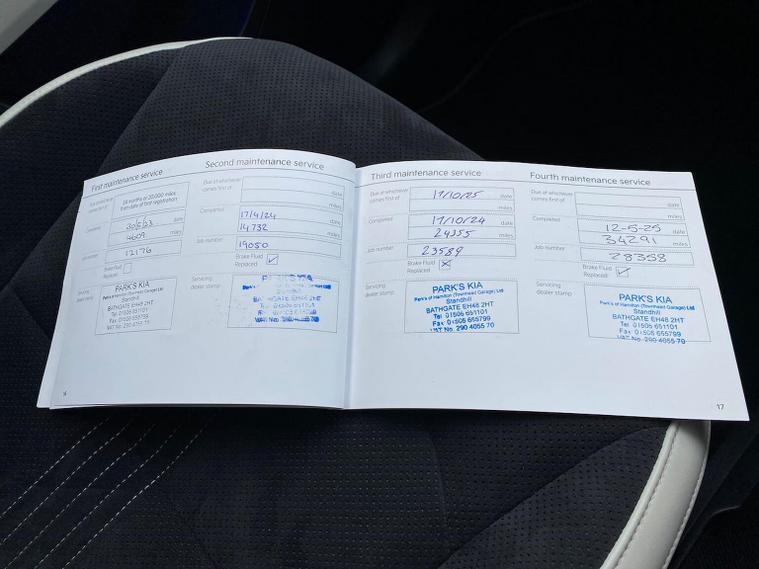 First maintenance service
Due at whichever comes first of:
24 months or 20,000 miles
from date of first registration
Completed
30/5/23 date
4609 miles
Job number
12176
Brake Fluid
Replaced
Servicing
dealer stamp
PARK'S KIA
Park's of Hamilton (Townhead Garage) Ltd
Standhill
BATHGATE EH48 2HT
Tel 01506 651101
Fax 01506 655799
VAT No. 290 4055 70
16
Second maintenance service
Due at whichever
comes first of:
date
miles
Completed
17/4/24 date
14732 miles
Job number
19050
Brake Fluid
Replaced
Servicing
dealer stamp
BATHGATE
Third maintenance service
Due at whichever
comes first of:
17/10/25 date
miles
Completed
17/10/24 date
24355 miles
Job number
23589
Brake Fluid
Replaced
Servicing
dealer stamp
PARK'S KIA
Park's of Hamilton (Townhead Garage) Ltd
Standhill
BATHGATE EH48 2HT
Tel 01506 651101
Fax 01506 655799
VAT No. 290 4055 70
Fourth maintenance service
Due at whichever
comes first of:
date
miles
Completed
12-5-25 date
34291 miles
Job number
28358
Brake Fluid
Replaced
Servicing
dealer stamp
PARK'S KIA
Park's of Hamilton (Townhead Garage) Ltd
Standhill
BATHGATE EH48 2HT
Tel 01506 651101
Fax 01506 655799
VAT No. 290 4055 70
17